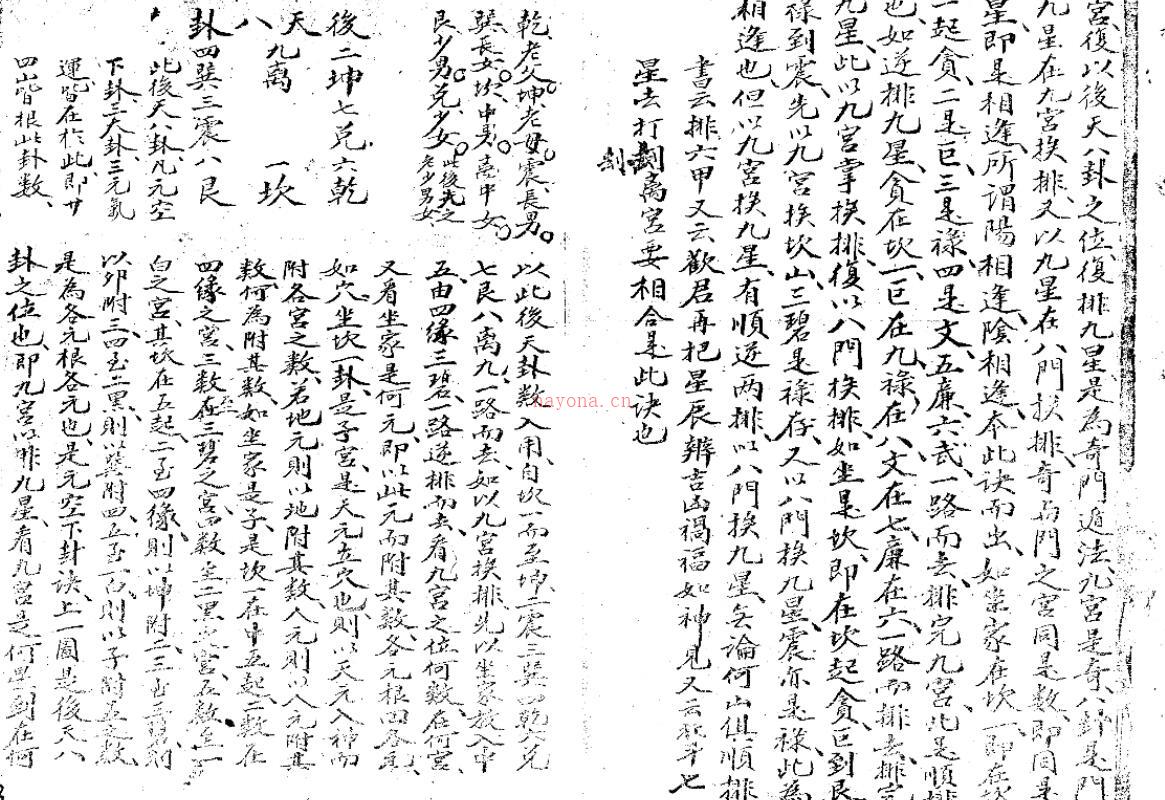 宮、復以後天八卦之位、復排九星、是為奇門遁法、九宮是奇、八卦是門
九星在九宮挨排、又以九星在八門挨排、奇與門之宮同是數、即同是
星、即是相逢、所謂陽相逢陰相逢、本此訣而出、如坐家在坎一、即在坎
一起貪、二是巨、三是祿、四是文、五廉、六武、一路而去、排完九宮、此是順排
也、如逆排九星、貪在坎一、巨在九、祿在八、文在七、廉在六、一路而排去、排完
九星、此以九宮掌挨排、復以八門挨排、如坐是坎、即在坎起貪、巨到艮
祿到震、先以九宮挨坎山、三碧是祿存、又以八門挨九星、震亦是祿、此為
相逢也、但以九宮挨九星、有順逆兩排、以八門挨九星、無論何山俱順排
書云排六甲、又云歡君再把星辰辨、吉凶禍福如神見、又云北斗七
星去打刼離宮要相合、是此訣也
刼
乾、老父、坤、老母、震、長男、
巽、長女、坎、中男、離、中女、
艮、少男、兌、少女、此後天之老少男女
後二坤七兌六乾
天九離 一坎
八
卦四巽三震八艮
此後天八卦、凡元空
下卦、三大卦、三元氣
運、皆在於此、即廿
四山皆根此卦數、
以此後天卦數入用、自坎一而至坤二震三巽四乾六兌
七艮八離九一路而去、如以九宮挨排、先以坐家放入中
五、由四綠三碧一路逆排而去、看九宮之位何數在何宮
又看坐家是何元、即以此元而附其數、各元根四各其
如穴坐坎一卦、是子宮、是天元立穴也、則以天元入神而
附各宮之數、若地元則以地附其數、人元則以人元附其
數、何為附其數、如坐家是子、是坎一在中五起、二數在
四綠之宮、三數在三碧之宮、四數至二黑之宮、五數至一
白之宮、其坎在五起、二至四綠、則以坤附二、三至三碧、則
以卯附三、四至二黑、則以巽附四、五至一白、則以子附五之數
是為各元根各元也、是元空下卦訣、上一圖是後天八
卦之位也、即九宮以排九星、看九宮是何星到在何
nayona.cn